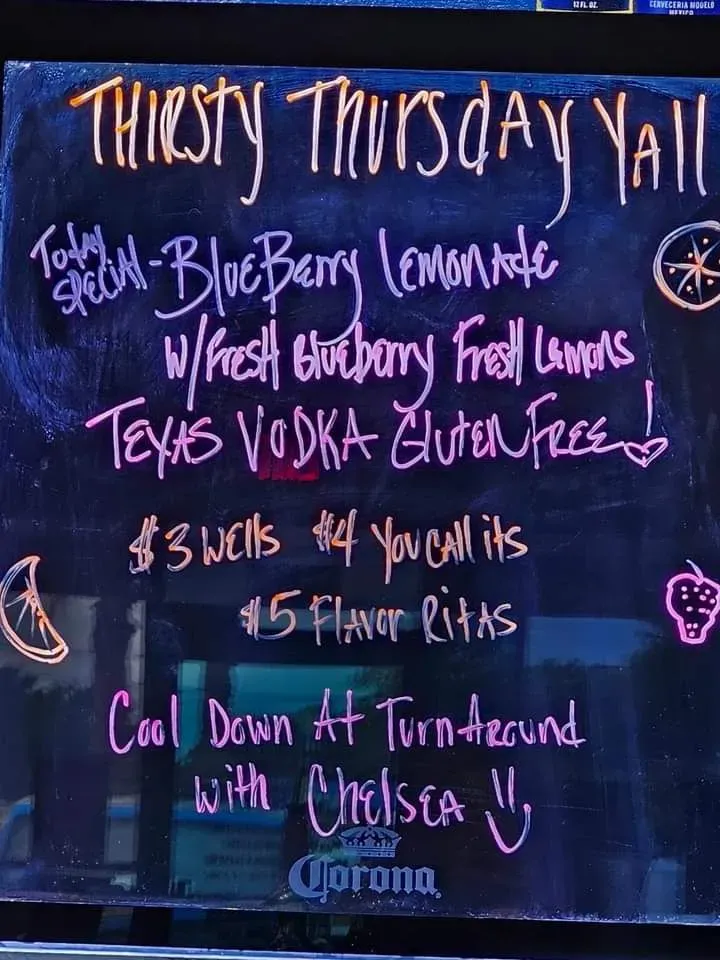 12 FL. OZ.
CERVECERIA MODELO
MEXICO
THIRSTY THURSDAY YALL
Today
SPECIAL - BlueBerry LEMONADE
W/FRESH Blueberry FRESH Lemons
TEXAS VODKA Gluten FREE!
$3 Wells $4 You Call its
$5 Flavor Ritas
Cool Down At TurnAround
with Chelsea
Corona